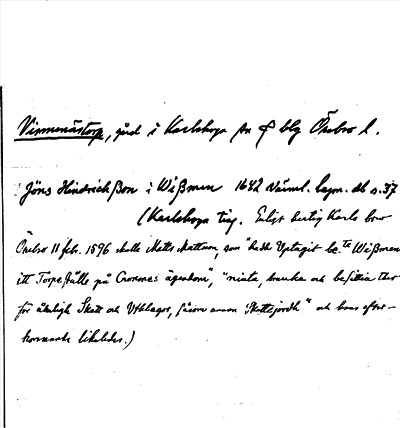 Vismenästorp, gård i Karlskoga sn o blg Örebro l.
Jöns Hindrichßon i Wißmen 1642 Värml. lagm. db s. 37
(Karlskoga ting. Enligt hertig Karls brev
Örebro 11 febr. 1596 skulle Matts Mattson, som "hade Uptagit be.te Wißmen
itt Torpeställe på Cronones ägendom", "niuta, bruka och besittia thet
för åhrligh Skatt och Uthlagor, såsom annan Skattejordh" och hans efter-
kommande likaledes.)